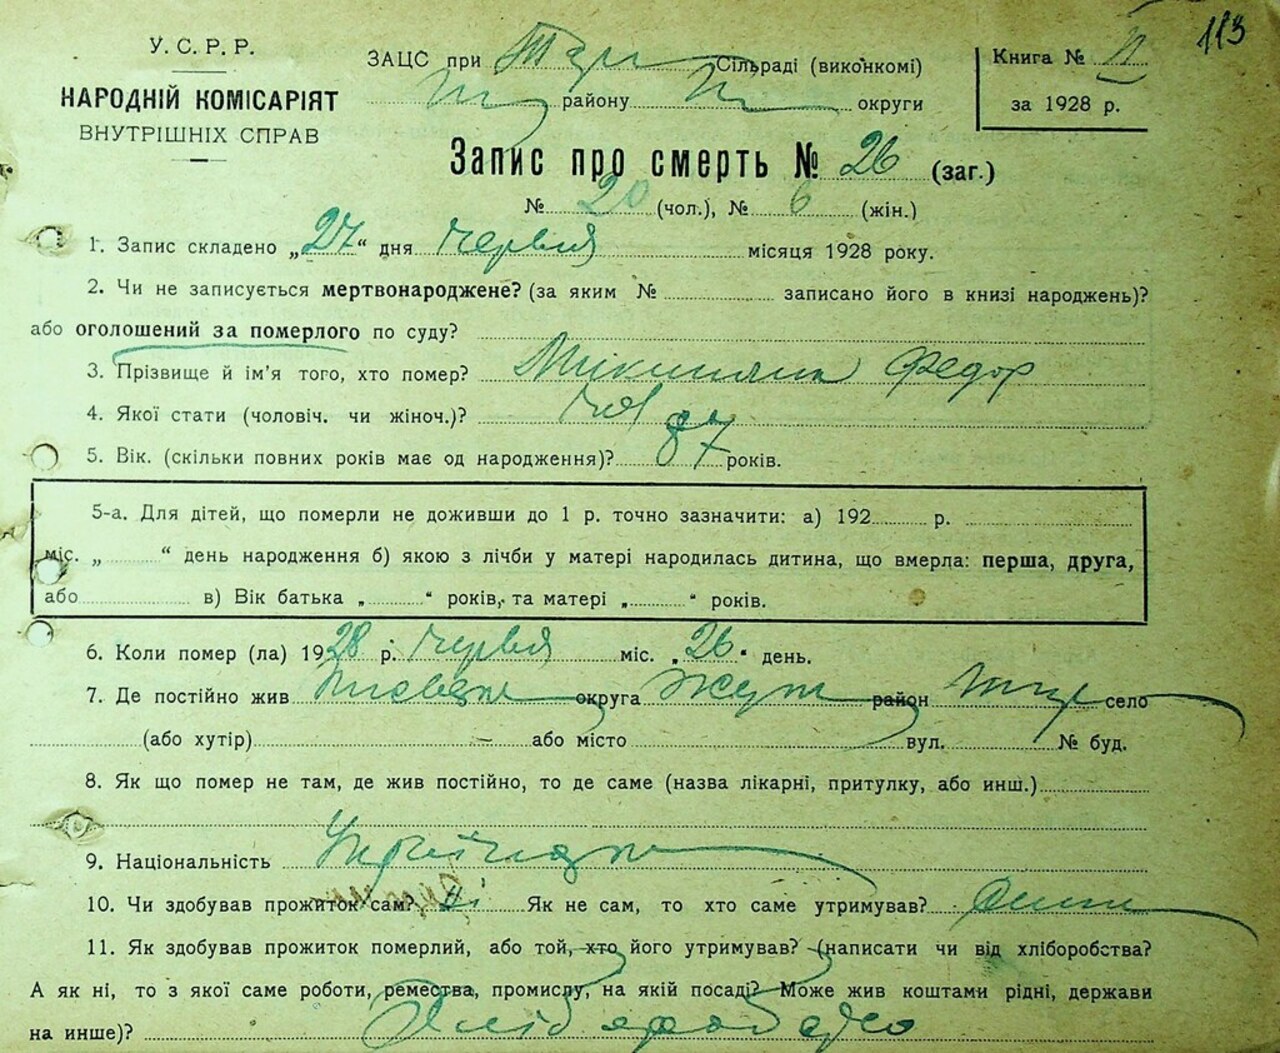 113
У. С. Р. Р.
НАРОДНІЙ КОМІСАРІЯТ
ВНУТРІШНІХ СПРАВ
ЗАЦС при Сільраді (виконкомі)
району округи
Книга № II
за 1928 р.
Запис про смерть № 26 (заг.)
№ 20 (чол.), № 6 (жін.)
1. Запис складено „27“ дня червня місяця 1928 року.
2. Чи не записується мертвонароджене? (за яким № записано його в книзі народжень)?
або оголошений за померлого по суду?
3. Прізвище й ім'я того, хто помер? Федор
4. Якої стати (чоловіч. чи жіноч.)? чол
5. Вік. (скільки повних років має од народження)? 87 років.
5-а. Для дітей, що померли не доживши до 1 р. точно зазначити: а) 192 р.
міс. „ “ день народження б) якою з лічби у матері народилась дитина, що вмерла: перша, друга,
або в) Вік батька „ “ років, та матері „ “ років.
6. Коли помер (ла) 1928 р. червня міс. „26“ день.
7. Де постійно жив округа район село
(або хутір) або місто вул. № буд.
8. Як що помер не там, де жив постійно, то де саме (назва лікарні, притулку, або инш.)
9. Національність
10. Чи здобував прожиток сам? ні Як не сам, то хто саме утримував?
11. Як здобував прожиток померлий, або той, хто його утримував? (написати чи від хліборобства?
А як ні, то з якої саме роботи, ремества, промислу, на якій посаді? Може жив коштами рідні, держави
на инше)?